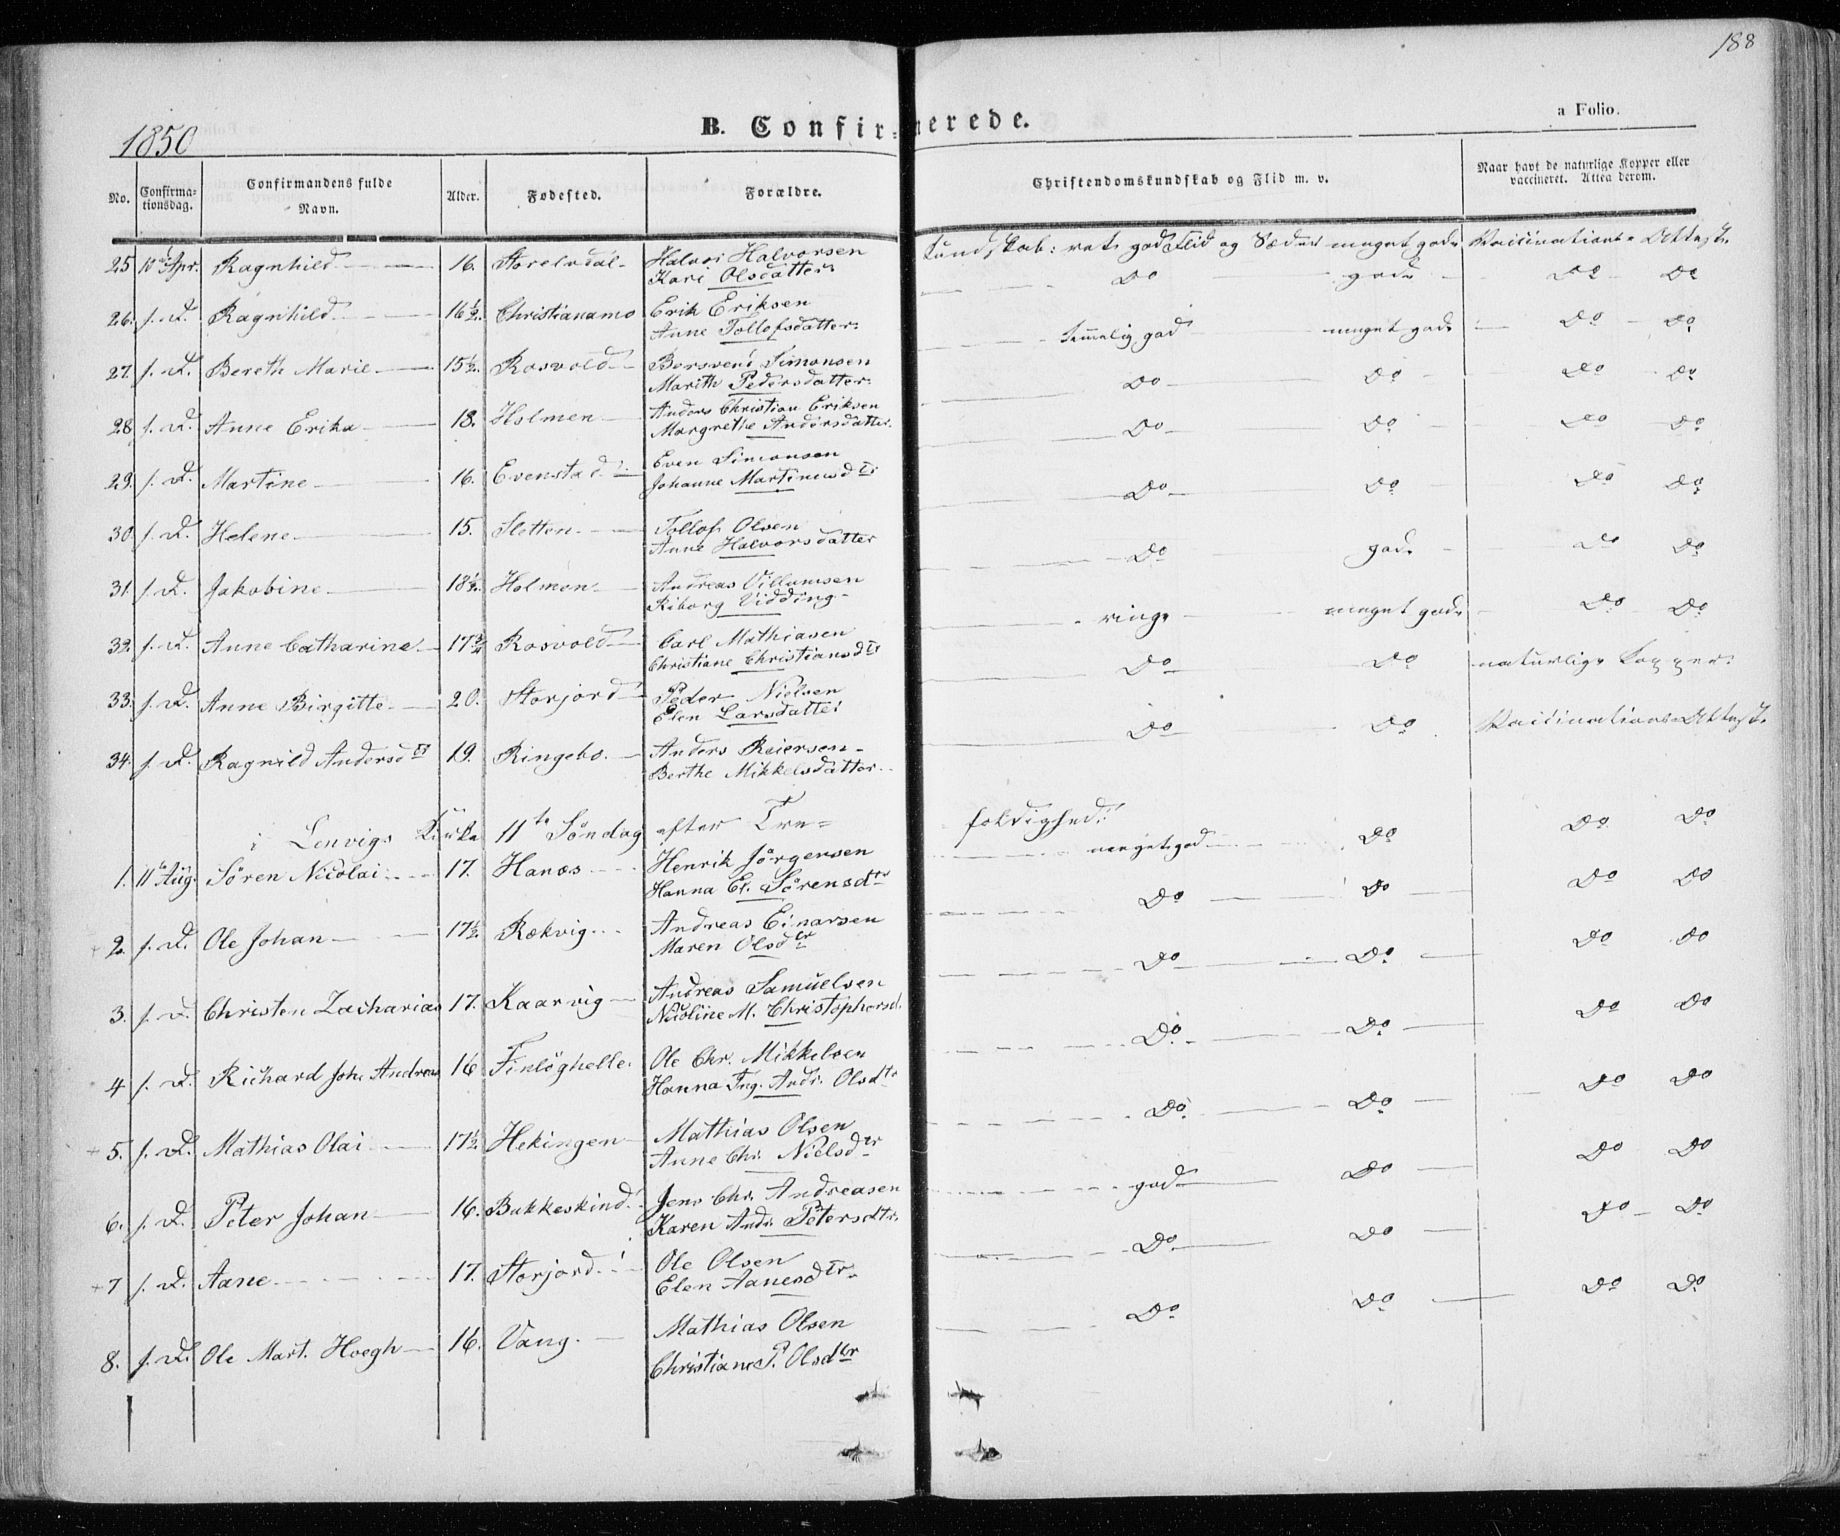 188
1850
B. Confirmerede.
a Folio.
No.
Confirma-
tionsdag.
Confirmandens fulde
Navn.
Alder.
Fødested.
Forældre.
Christendomskundskab og Flid m. v.
Naar havt de naturlige Kopper eller
vaccineret. Attest derom.
25 Apr. Ragnhild 16. Storelvdal Halvor Halvorsen Kundskab: god Flid og Sæder meget gode Vaccinations Attest
Kari Olsdatter
26. f. D. Ragnhild 16½ Christianamo Erik Eriksen Do gode Do Do
Anne Tollofsdatter
27. f. D. Bereth Marie 15½ Rosvold Simonsen Temmelig god meget gode Do Do
Marith Pedersdatter
28 f. D. Anne Erika 18. Holmen Anders Christian Eriksen Do Do Do Do
Margrethe Andersdatter
29. f. D. Martine 16. Evenstad Even Simonsen Do Do Do Do
Johanne Martinusdtr
30. f. D. Helene 15. Sletten Tollof Olsen Do Do Do Do
Anne Halvorsdatter
31. f. D. Jakobine 18½ Holmen Andreas Villumsen Do gode Do Do
Riborg Vidding
32. f. D. Anne Catharine 17 Rosvold Carl Mathiasen ringe meget gode Do Do
Christiane Christiansdtr
33. f. D. Anne Birgitte 20. Storjord Peder Nielsen Do Do naturlige Kopper
Elen Larsdatter
34. f. D. Ragnild Andersdtr 19. Ringebo Anders Reiersen Do Do Vaccinations Attest
Berthe Mikkelsdatter
i Lenvigs Kirke 11te Søndag efter Tre=
foldighed:
1. 11te Aug. Søren Nicolai 17. Hanæs Henrik Jørgensen meget god Do Do Do
Hanna El. Sørensdtr
2. f. D. Ole Johan 17½ Rækvig Andreas Einarsen Do Do Do Do
Maren Olsdtr
3. f. D. Christen Zacharias 17. Kaarvig Andreas Samuelsen Do Do Do Do
Nicoline M. Christophersd.
4 f. D. Richard Joh. Andreas 16 Finløghelle Ole Chr. Mikkelsen Do Do Do Do
Hanna Ing. Andr. Olsdtr
5. f. D. Mathias Olai 17½ Hekingen Mathias Olsen Do Do Do Do
Anne Chr. Nielsdtr
6. f. D. Peter Johan 16. Bukkeskind Jens Chr. Andreasen god Do Do Do
Karen Andr. Petersdtr.
7 f. D. Aane 17. Storjord Ole Olsen Do Do Do Do
Elen Aanesdtr
8. f. D. Ole Mart. Hoegh 16. Vang. Mathias Olsen Do Do Do Do
Christiane P. Olsdtr